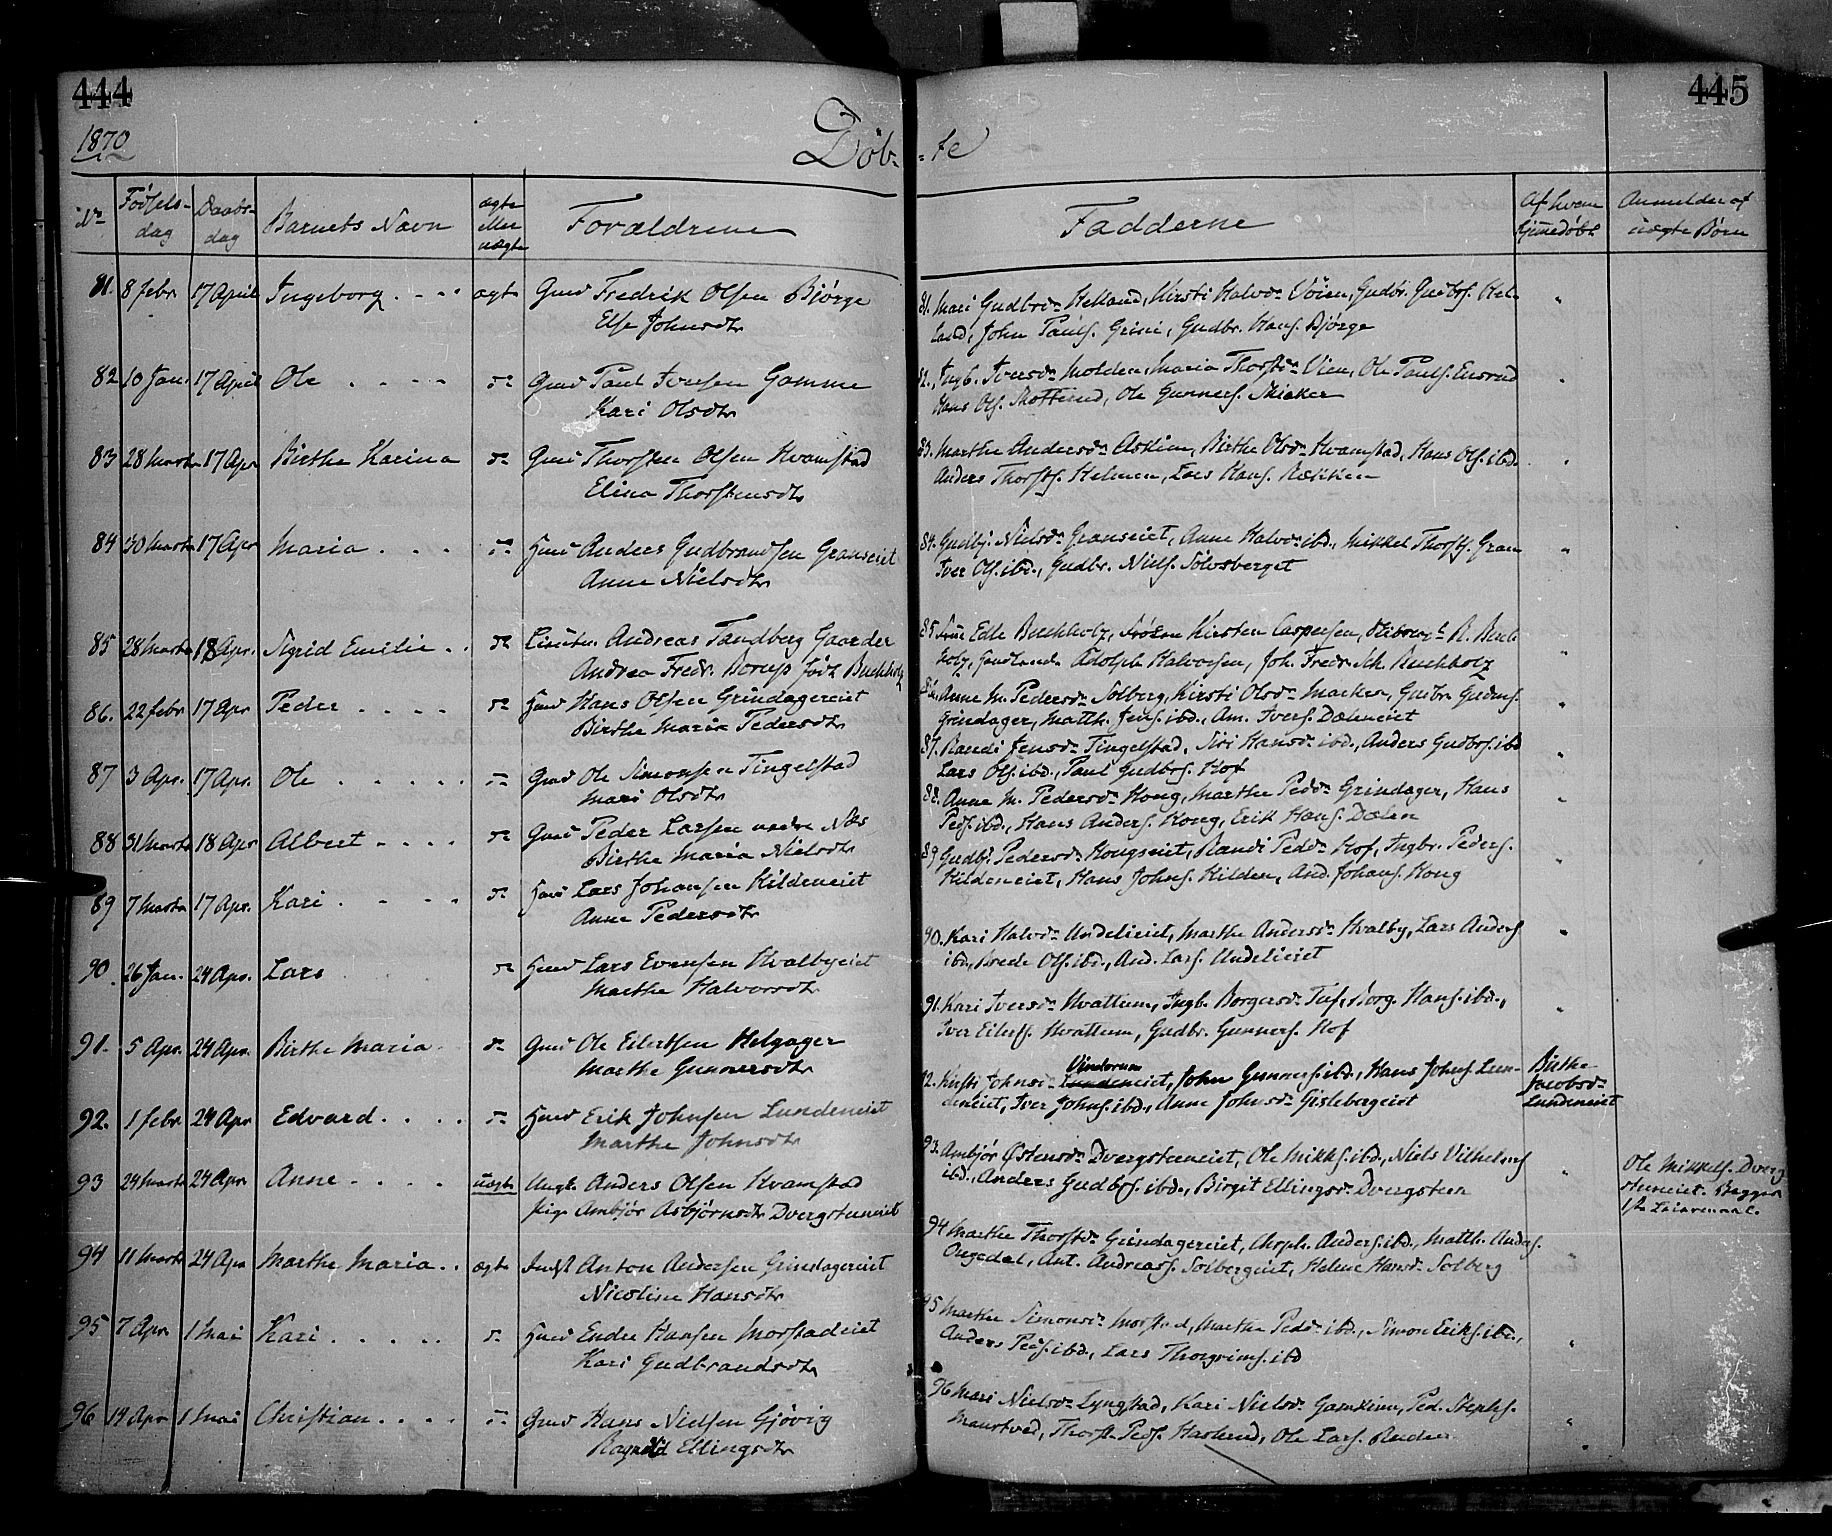 444
445
1870
Døb-
-te
No
Fødsels-
dag
Daabs-
dag
Barnets Navn
ægte
eller
uægte
Forældrene
Fadderne
Af hvem
hjemmedøbt
Anmelder af
uægte Børn
81. 8 febr 17 April Ingeborg ægte Gmd Fredrik Olsen Bjørge
Else Johnsdtr
82 10 Jan. 17 April Ole do Gmd Paul Iversen Gamme
Kari Olsdtr
83 28 Marts 17 Apr Birthe Karina do Gmd Thorsten Olsen Kvamstad
Elina Thorstensdtr
84 30 Marts 17 Apr Maria do Hmd Anders Gudbrandsen Granseiet
Anne Nielsdtr
85 28 Marts 18 Apr. Sigrid Emilie do Lieutn. Andreas Tandberg Gaarder
Andrea Fredr. Borup født Buchholz
86. 22 febr 17 Apr Peder do Hmd Hans Olsen Grindagereiet
Birthe Maria Pedersdtr
87 3 Apr. 17 Apr. Ole do Gmd Ole Simonsen Tingelstad
Mari Olsdtr
88 31 Marts 18 Apr Albert do Gmd Peder Larsen nedre Næs
Birthe Maria Nielsdtr
89 7 Marts 17 Apr. Kari do Hmd Lars Johansen Kildeneiet
Anne Pedersdtr
90. 26 Jan. 24 Apr. Lars do Hmd Lars Evensen Hvalbyeiet
Marthe Halvorsdtr
91. 5 Apr. 24 Apr. Birthe Maria do Gmd Ole Eilertsen Helgager
Marthe Gunnersdtr
92. 1 febr 24 Apr Edvard do Hmd Erik Johnsen Lundeneiet
Marthe Johnsdtr
93 24 Marts 24 Apr. Anne uægte Ungk. Anders Olsen Kvamstad
Pige Ambjør Asbjørnsdtr Dvergsteneiet
94 11 Marts 24 Apr Marthe Maria ægte Indst Anton Andersen Grindagereiet
Nicoline Hansdtr
95 7 Apr. 1 Mai Kari do Hmd Endre Hansen Morstadeiet
Kari Gudbrandsdtr
96 14 Apr 1 Mai Christian do Gmd Hans Nielsen Gjøvig
Ragnild Ellingsdtr
81. Mari Gudbrdr Helland, Kirsti Halvdr Vøien, Gudbr. Gudbrs. Hel-
land, John Pauls. Grini, Gudbr. Hans. Bjørge
82. Ingb. Iversdr Molden, Maria Thorstdr Vien, Ole Pauls. Ensrud
Hans Ols. Skotterud, Ole Gunners. Skiaker
83. Marthe Andersdr Askim, Birthe Olsdr Kvamstad, Hans Ols. ibd.
Anders Thorsts. Helmen, Lars Hans. Rækken
84. Gudbj. Nielsdr Granseiet, Anne Halvdr ibd., Mikkel Thorsts. Gran
Iver Ols. ibd., Gudbr. Niels. Sølvsberget
85 Frue Edle Buchholz, Frøken Kirsten Caspersen, R. Buch-
holz, Adolph Halvorsen, Joh. Fredr. Sch. Buchholz
86. Anne M. Pedersdr Solberg, Kirsti Olsdr Macken, Gudbr.
Grindager, Matth. Jens. ibd., Am. Ivers. Dæhneiet
87. Randi Jensdr Tingelstad, Siri Hansdr ibd., Anders Gudbrs. ibd
Lars Ols. ibd., Paul Gudbrs. Hof
88. Anne M. Pedersdr Kong, Marthe Peddr Grindager, Hans
Peds. ibd., Hans Anders. Kong, Erik Hans. Dælen
89 Gudbj. Pedersdr Kongseiet, Randi Peddr Hof, Ingbr. Peders.
Kildeneiet, Hans Johns. Kilden, And. Johans. Kong
90. Kari Halvdr Undelieiet, Marthe Andersdr Hvalby, Lars Anders
ibd., Ols. ibd., And. Lars. Undelieiet
91. Kari Iversdr Hvattum, Ingb. Borgersdr Tuf, Borg. Hans. ibd.,
Iver Eilerts. Hvattum, Gudbr. Gunners. Hof
Vindorum
92. Kirsti Johnsdr Lundeneiet, John Gunners. ibd., Hans Johns. Lun-
deneiet, Iver Johns. ibd., Anne Johnsdr Gislebergeiet
Birthe
Jacobsdr
Lundeneiet
93. Ambjør Østensdr Dvergsteneiet, Ole Mikkels. ibd., Niels Vilhelms
ibd., Anders Gudbrs. ibd., Birgit Ellingsdr Dvergsten
Ole Mikkels. Dverg
steneiet.
94 Marthe Thorstdr Grindagereiet, Chrph. Anders. ibd., Matth. Anders.
Ongedal, Ant. Andreass. Solbergeiet, Helene Hansdr Solberg
95 Marthe Simonsdr Morstad, Marthe Peddr ibd., Simon Eriks. ibd.,
Anders Peds. ibd., Lars Thorgrims. ibd
96 Mari Nielsdr Lyngstad, Kari Nielsdr Gamkinn, Ped. Stephs.
Thorst. Peds. Ole Lars. Ruden